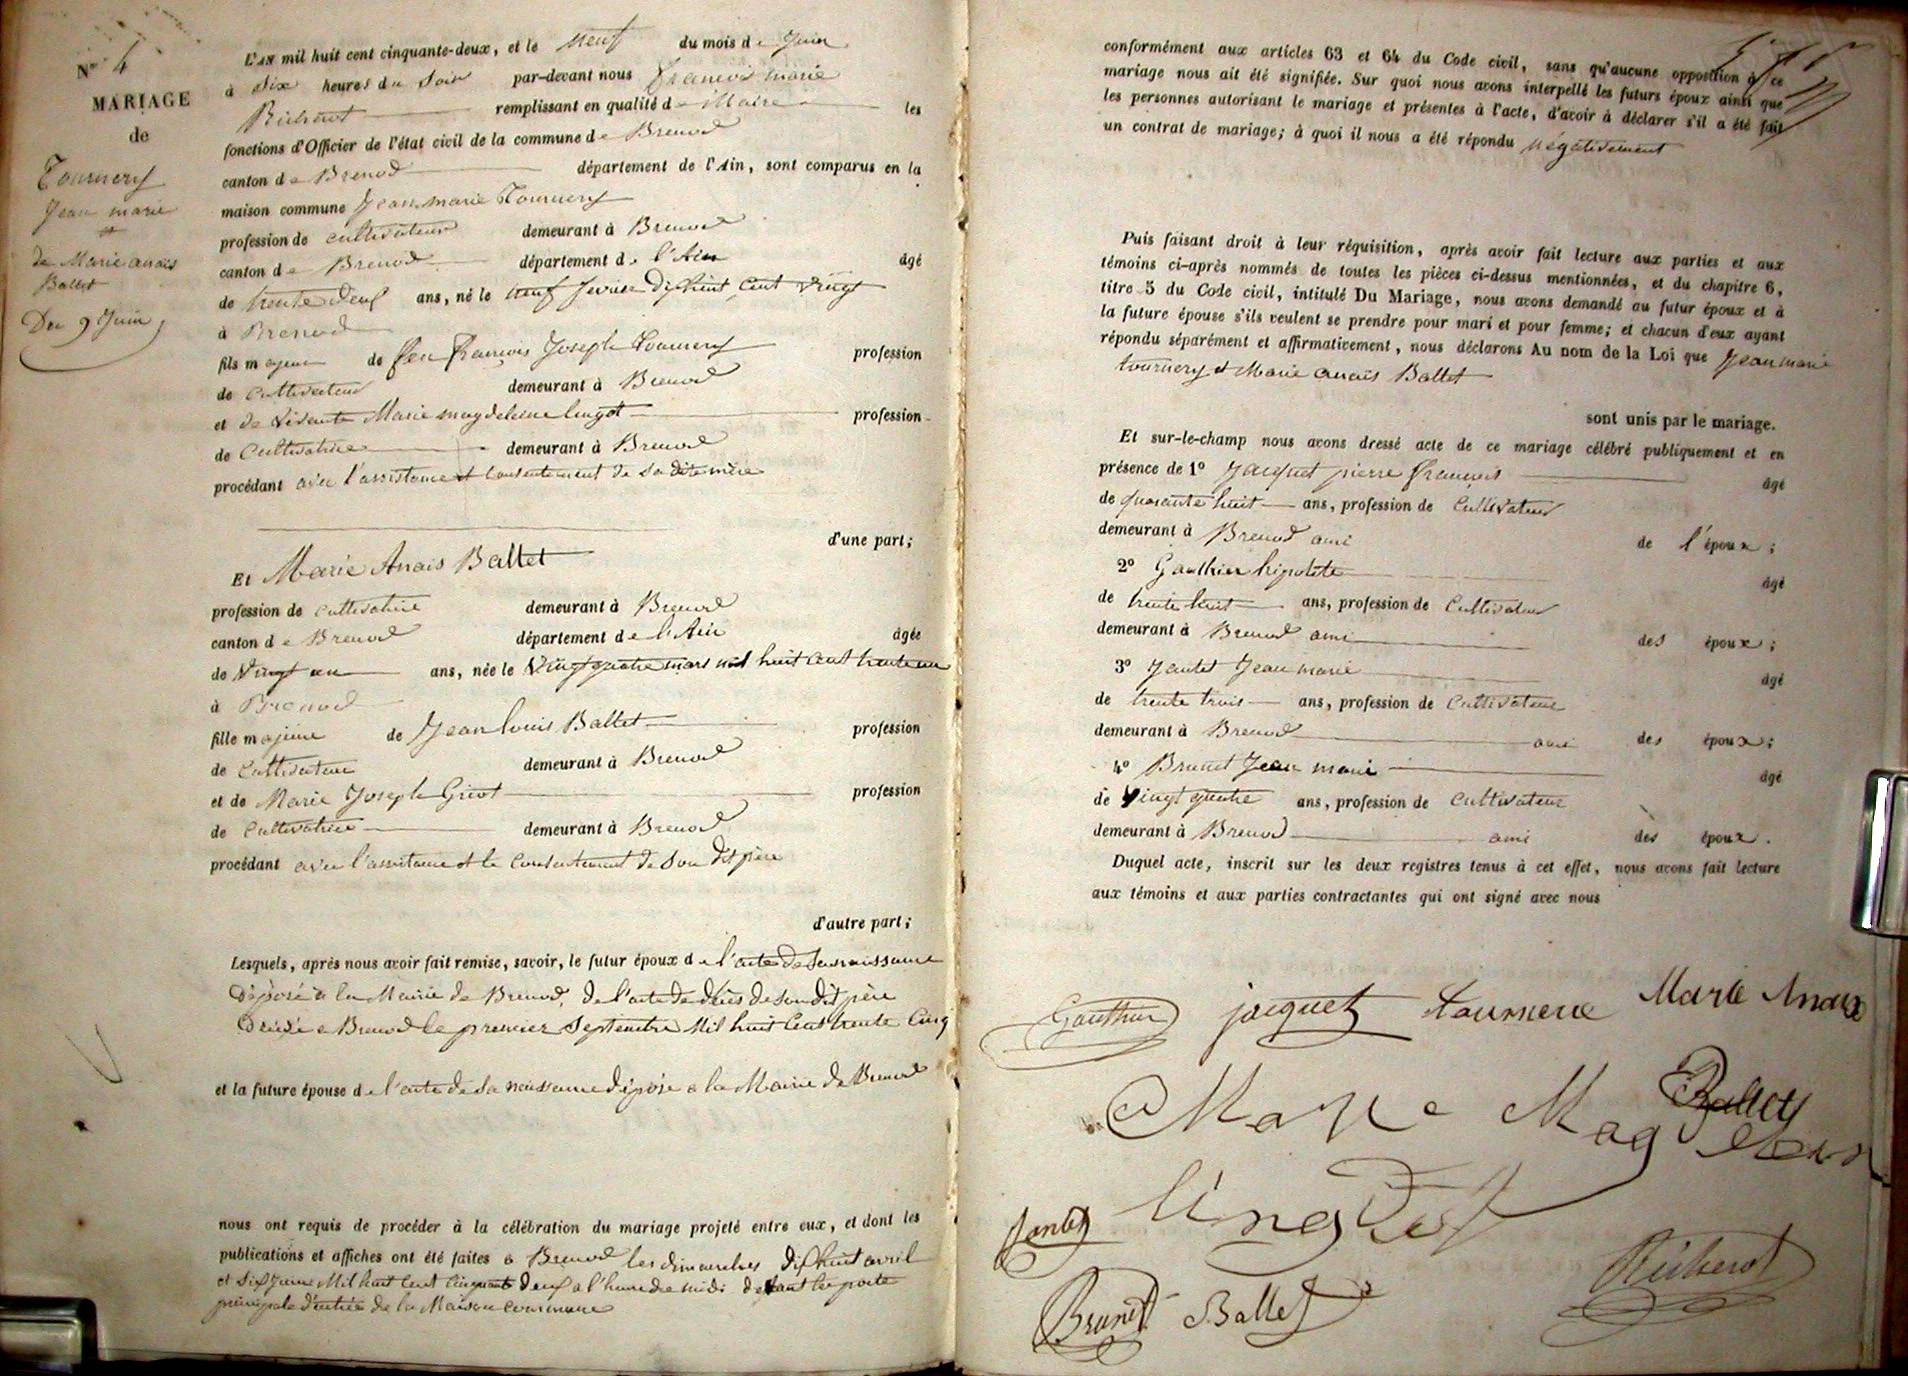 Nº 4
MARIAGE
de
Tournery
Jean marie
&
de Marie anais
Ballet
Du 9 Juin
L'AN mil huit cent cinquante-deux, et le neuf du mois de Juin
à six heures du soir par-devant nous françois marie
Richerot remplissant en qualité de Maire les
fonctions d'Officier de l'état civil de la commune de Brenod
canton de Brenod département de l'Ain, sont comparus en la
maison commune Jean marie Tournery
profession de cultivateur demeurant à Brenod
canton de Brenod département de l'Ain âgé
de trente deux ans, né le neuf fevrier dix huit cent vingt
à Brenod
fils majeur de feu françois Joseph Tournery profession
de cultivateur demeurant à Brenod
et de vivante Marie magdeleine lingot profession
de Cultivatrice demeurant à Brenod
procédant avec l'assistance et consentement de sa dite mère
d'une part;
Et Marie Anais Ballet
profession de cultivatrice demeurant à Brenod
canton de Brenod département de l'Ain âgée
de vingt un ans, née le vingt quatre mars mil huit cent trente un
à Brenod
fille majeure de Jean louis Ballet profession
de Cultivateur demeurant à Brenod
et de Marie Joseph Griot profession
de Cultivatrice demeurant à Brenod
procédant avec l'assistance et le consentement de son dit père
d'autre part;
Lesquels, après nous avoir fait remise, savoir, le futur époux de l'acte de sa naissance
déposé à la Mairie de Brenod, de l'acte de décès de son dit père
décédé a Brenod le premier Septembre Mil huit Cent trente Cinq
et la future épouse de l'acte de sa naissance déposé a la Mairie de Brenod
nous ont requis de procéder à la célébration du mariage projeté entre eux, et dont les
publications et affiches ont été faites a Brenod les dimanches dix huit avril
et six Juin Mil huit Cent Cinquante deux a l'heure de midi devant la porte
principale d'entrée de la Maison commune
conformément aux articles 63 et 64 du Code civil, sans qu'aucune opposition à ce
mariage nous ait été signifiée. Sur quoi nous avons interpellé les futurs époux ainsi que
les personnes autorisant le mariage et présentes à l'acte, d'avoir à déclarer s'il a été fait
un contrat de mariage; à quoi il nous a été répondu négativement
Puis faisant droit à leur réquisition, après avoir fait lecture aux parties et aux
témoins ci-après nommés de toutes les pièces ci-dessus mentionnées, et du chapitre 6,
titre 5 du Code civil, intitulé Du Mariage, nous avons demandé au futur époux et à
la future épouse s'ils veulent se prendre pour mari et pour femme; et chacun d'eux ayant
répondu séparément et affirmativement, nous déclarons Au nom de la Loi que Jean marie
tournery et Marie anais Ballet
sont unis par le mariage.
Et sur-le-champ nous avons dressé acte de ce mariage célébré publiquement et en
présence de 1º Jacquet pierre françois âgé
de quarante huit ans, profession de Cultivateur
demeurant à Brenod ami de l'époux;
2º Gauthier hipolite âgé
de trente huit ans, profession de Cultivateur
demeurant à Brenod ami des époux;
3º Jantet Jean marie âgé
de trente trois ans, profession de Cultivateur
demeurant à Brenod ami des époux;
4º Brunet Jean marie âgé
de vingt quatre ans, profession de Cultivateur
demeurant à Brenod ami des époux.
Duquel acte, inscrit sur les deux registres tenus à cet effet, nous avons fait lecture
aux témoins et aux parties contractantes qui ont signé avec nous
Gauthier jacquet tournerie Marie Anaix
Ballet
Marie Magdelein
lingot
Jantet
Richerot
Brunet Ballet